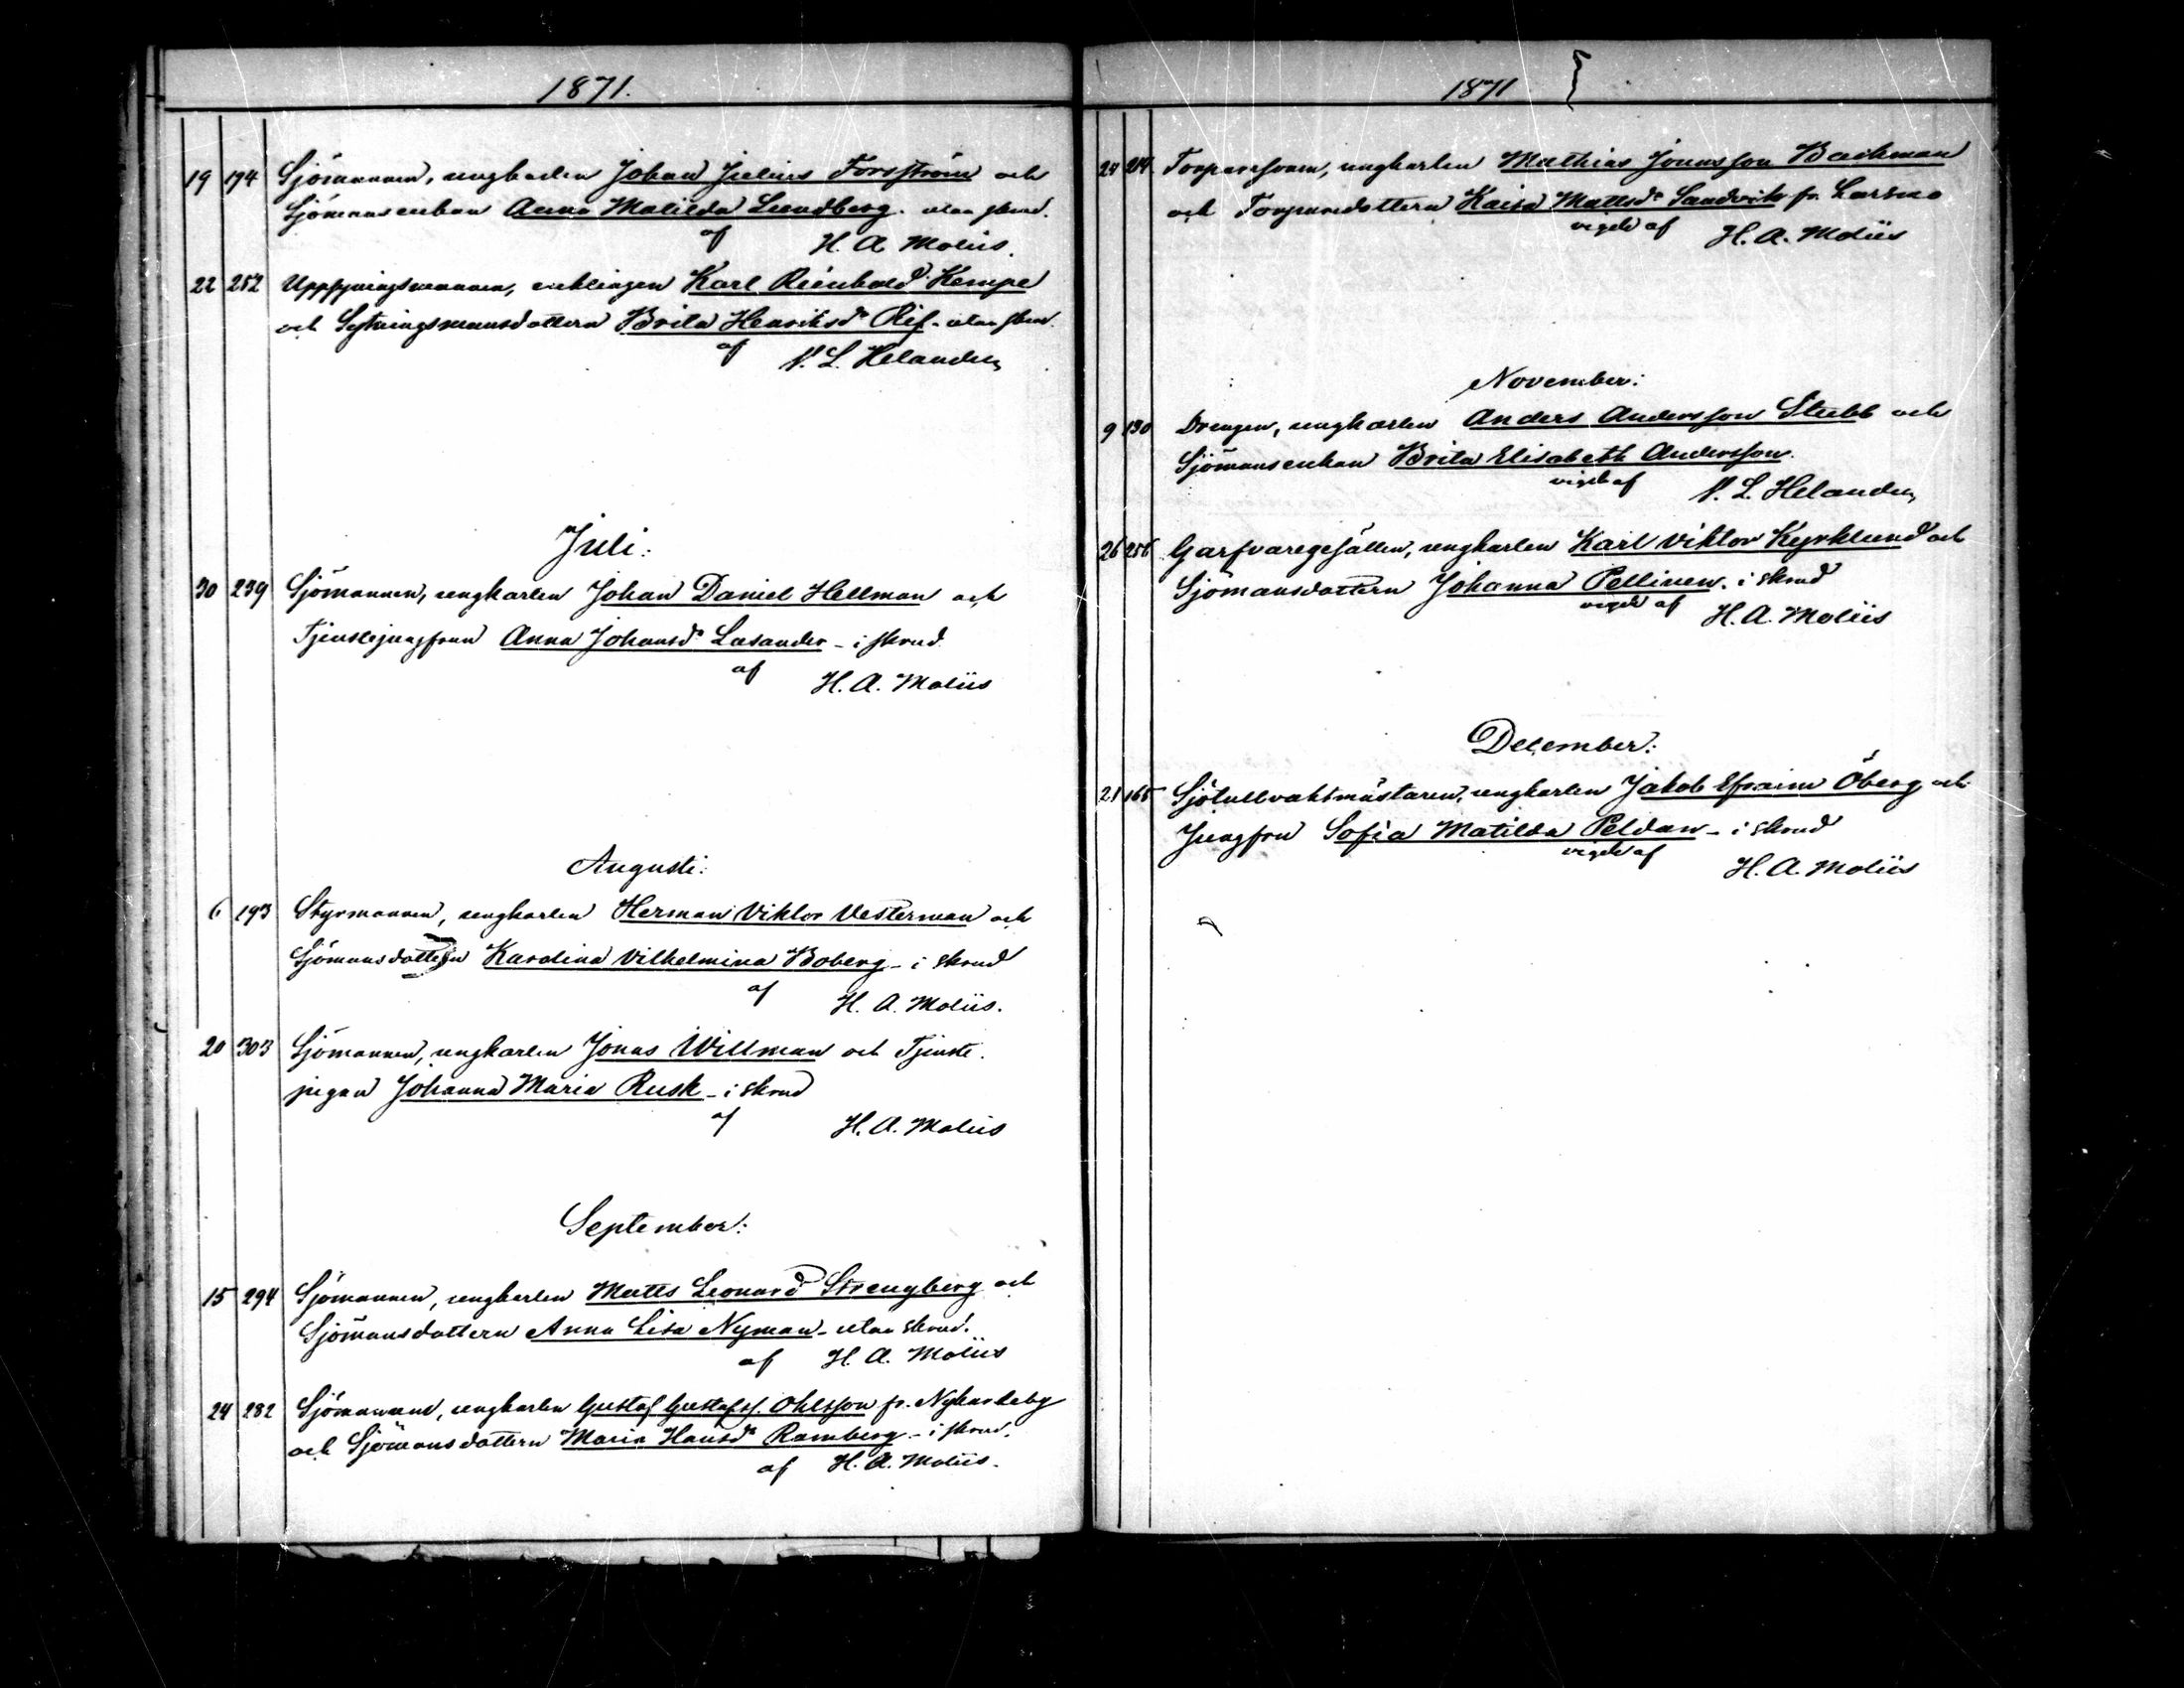 1871.
19 194 Sjömannen, ungkarlen Johan Julius Forsström och
Sjömansenkan Anna Matilda Lundberg. utan skrud.
af H. A. Moliis.
22 252 Uppsyningsmannen, enklingen Karl Reinhold Kempe
och Sytningsmansdottern Brita Henriksdr Rif - utan skrud.
af N. L. Helander
Juli:
30 239 Sjömannen, ungkarlen Johan Daniel Hellman och
Tjenstejungfrun Anna Johansdr Lasander - i skrud
af H. A. Moliis
Augusti:
6 193 Styrmannen, ungkarlen Herman Viktor Vesterman och
Sjömansdottern Karolina Vilhelmina Boberg - i skrud
af H. A. Moliis.
20 303 Sjömannen, ungkarlen Jonas Willman och Tjenste-
pigan Johanna Maria Rusk - i skrud
af H. A. Moliis
September:
15 294 Sjömannen, ungkarlen Matts Leonard Strengberg och
Sjömansdottern Anna Lisa Nyman - utan skrud.
af H. A. Moliis
24 282 Sjömannen, ungkarlen Gustaf Gustafss. Ohlsson fr. Nykarleby
och Sjömansdottern Maria Hansdr Ramberg - i skrud.
af H. A. Moliis.
1871
Torparesonen, ungkarlen Mathias Jonasson Backman
och Torparedottern Kaisa Mattsdr Sandvik fr. Larsmo
vigde af H. A. Moliis
November:
9 190 Drengen, ungkarlen Anders Andersson Stubb och
Sjömansenkan Brita Elisabeth Andersson.
vigde af N. L. Helander
26 256 Garfvaregesällen, ungkarlen Karl Viktor Kyrklund och
Sjömansdottern Johanna Pellinen. i skrud
vigde af H. A. Moliis
December:
21 165 Sjötullvaktmästaren, ungkarlen Jakob Efraim Öberg och
Jungfru Sofia Matilda Peldan - i skrud
vigde af H. A. Moliis